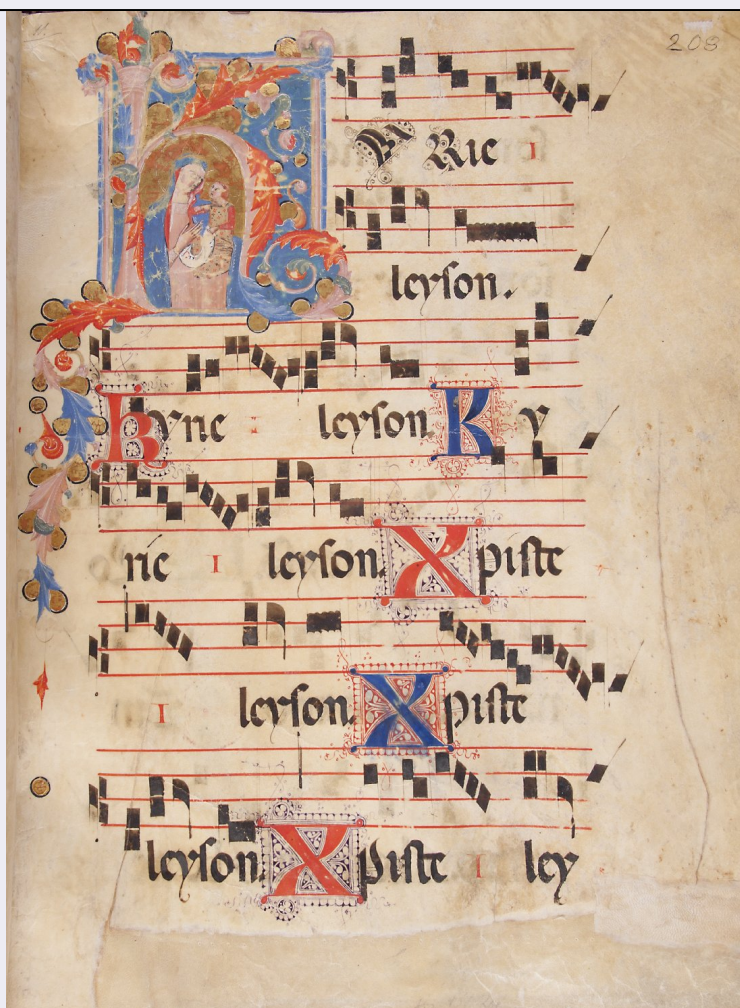 208
KYRie I
leyson.
kyrie I leyson. Ky
rie I leyson. Xpiste
I leyson. Xpiste
leyson. Xpiste I ley